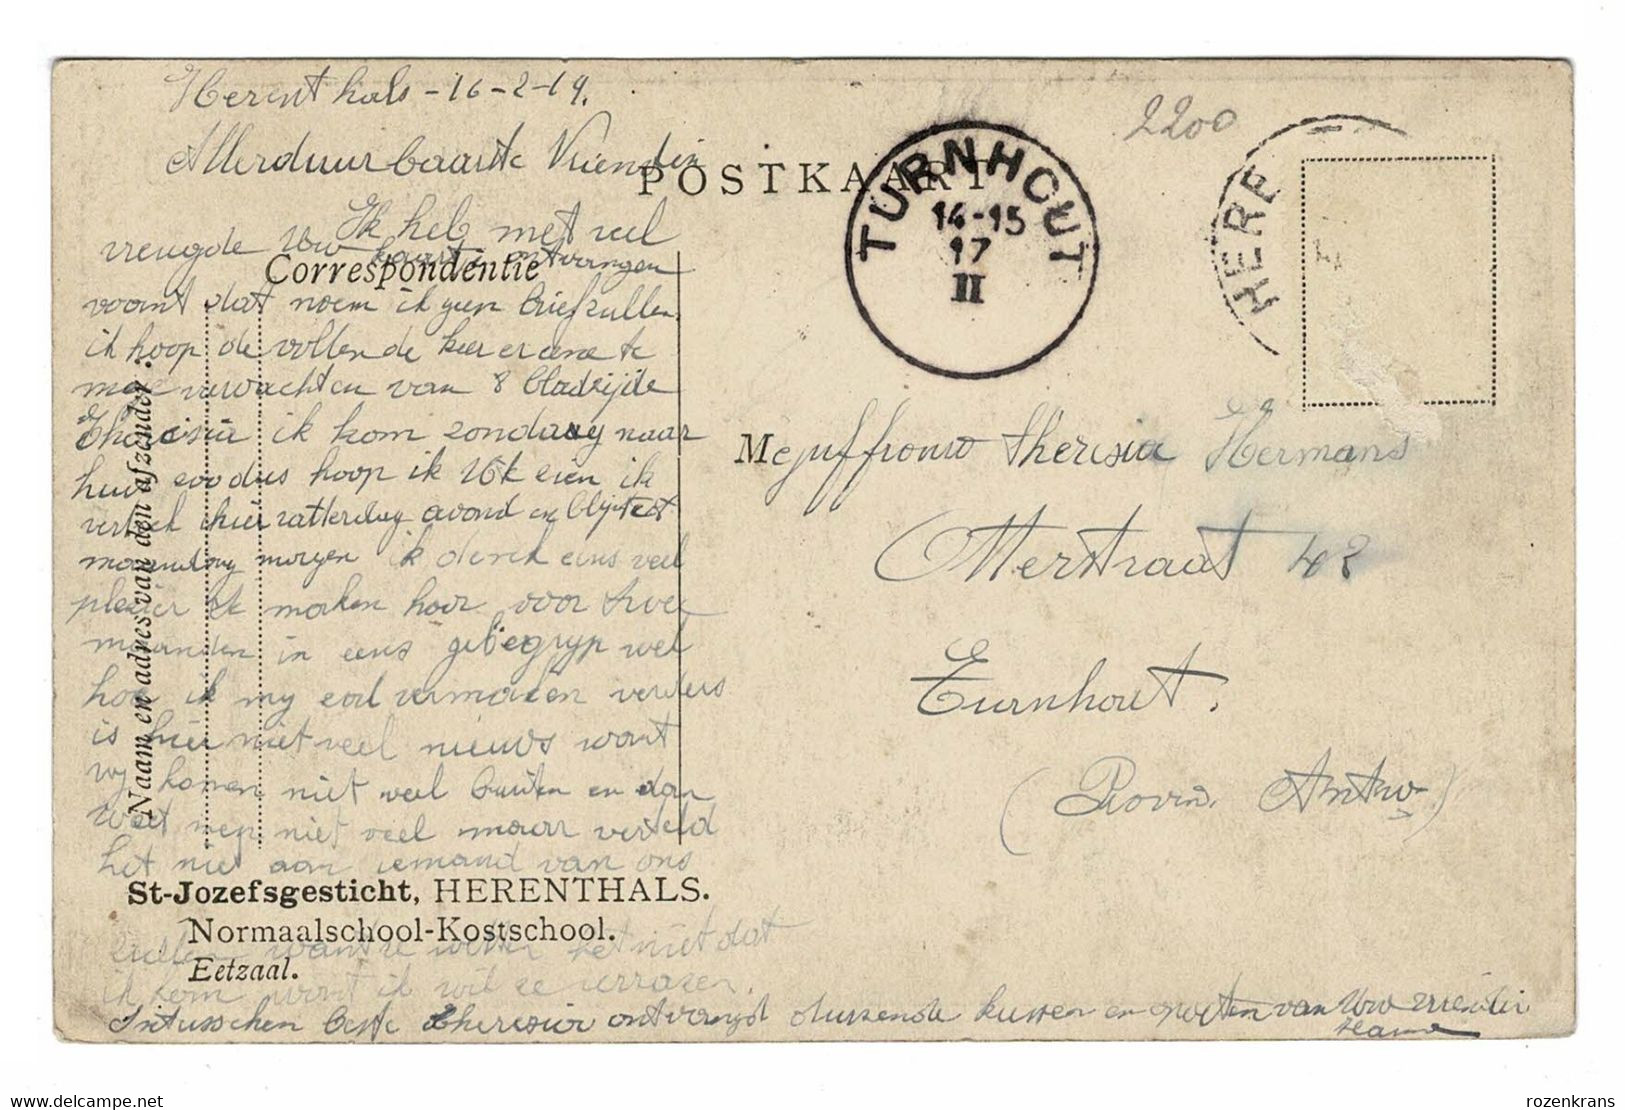 Herenthals - 16-2-19.
Allerduurbaarste Vriendin
POSTKAART
Ik heb met veel
vreugde Uw kaartje ontvangen
Correspondentie
voorit dat noem ik geen briefzullen
ik hoop de vollende keer er eene te
moe verwachten van 8 bladzijde
Theresia ik kom zondaag naar
huis zoo dus hoop ik U ook zien ik
vertrek hier zatterdag avond en blijf tot
maandag morgen ik denk eens veel
plezier te maken hoor voor twee
maanden in eens ge begryp wel
hoe ik my zal vermaken verders
is hier niet veel nieuws want
wy komen niet veel buiten en dan
weet men niet veel maar verteld
het niet aan iemand van ons
zullen want ze weten het niet dat
ik kom want ik wil ze verrazen.
Intusschen beste Theresia ontvangd duizende kussen en groeten van Uw vriendin
Naam en adres van den afzender :
St-Jozefsgesticht, HERENTHALS.
Normaalschool-Kostschool.
Eetzaal.
TURNHOUT
14-15
17
II
2200
HERE
Mejuffrouw Theresia Hermans
Otterstraat 42
Turnhout.
(Provin. Antw.)
rozenkrans.delcampe.net
rozenkrans